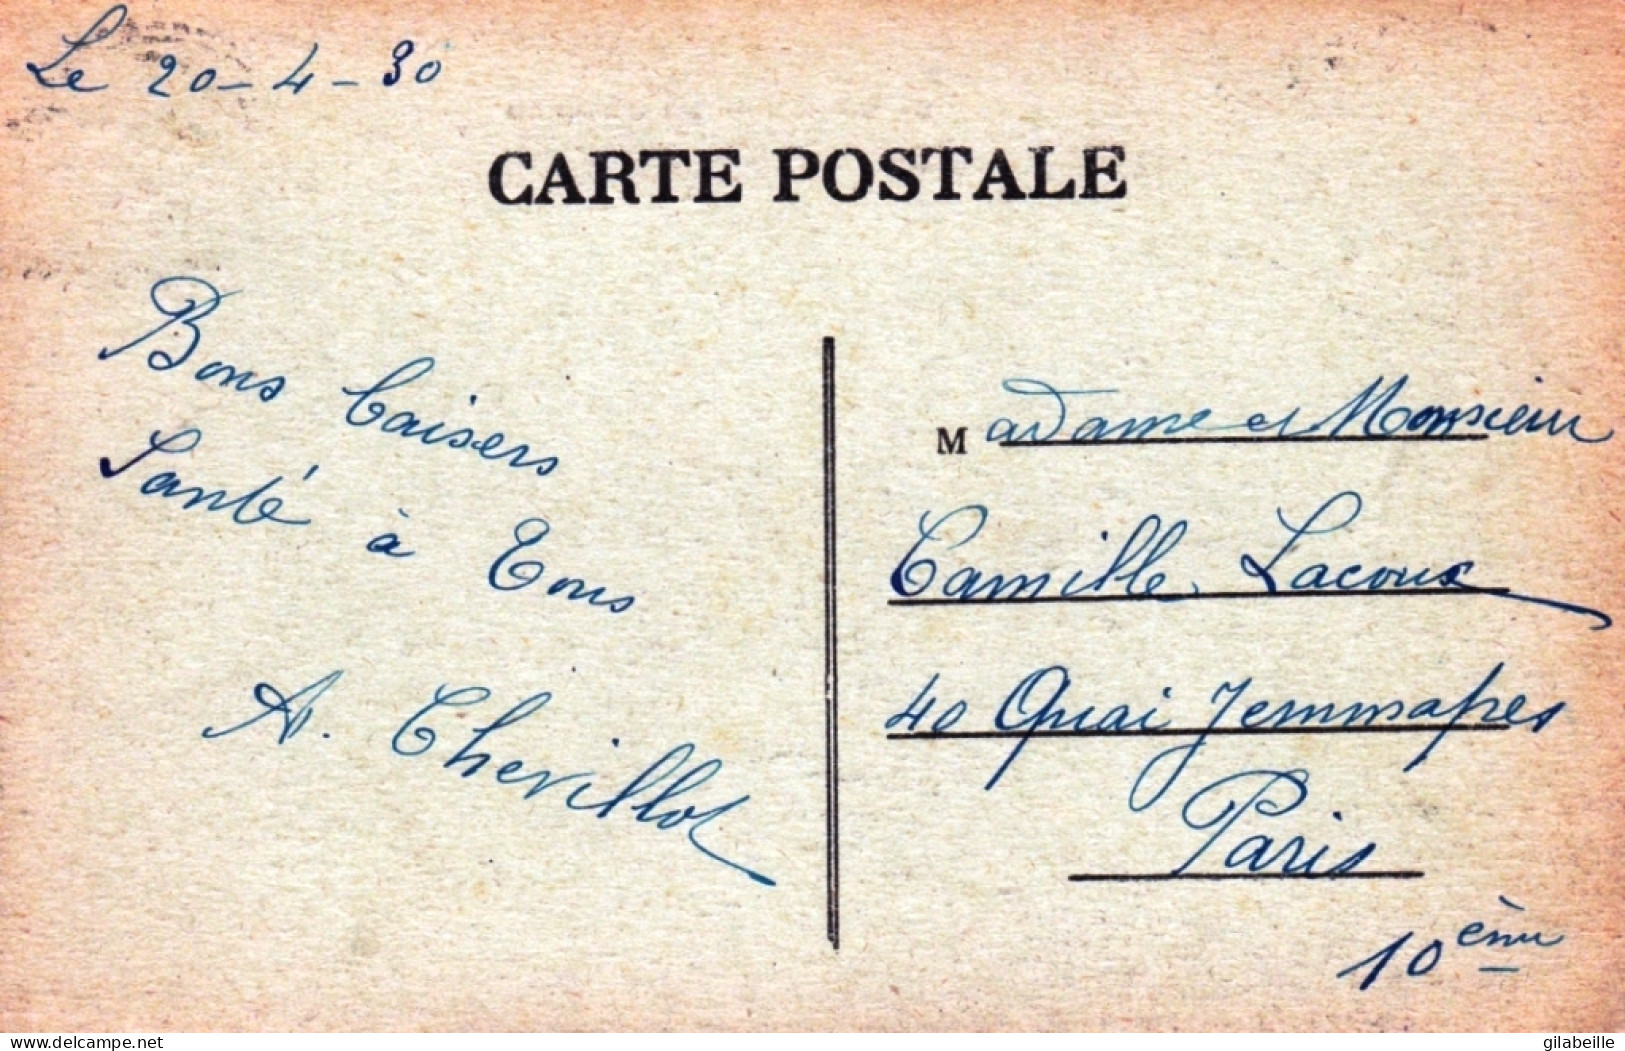 Le 20-4-30
CARTE POSTALE
Bons baisers
Santé à Tous
A. Chevillot
Madame et Monsieur
Camille Lacoux
40 Quai Jemmapes
Paris
10ème
delcampe.net
gilabeille